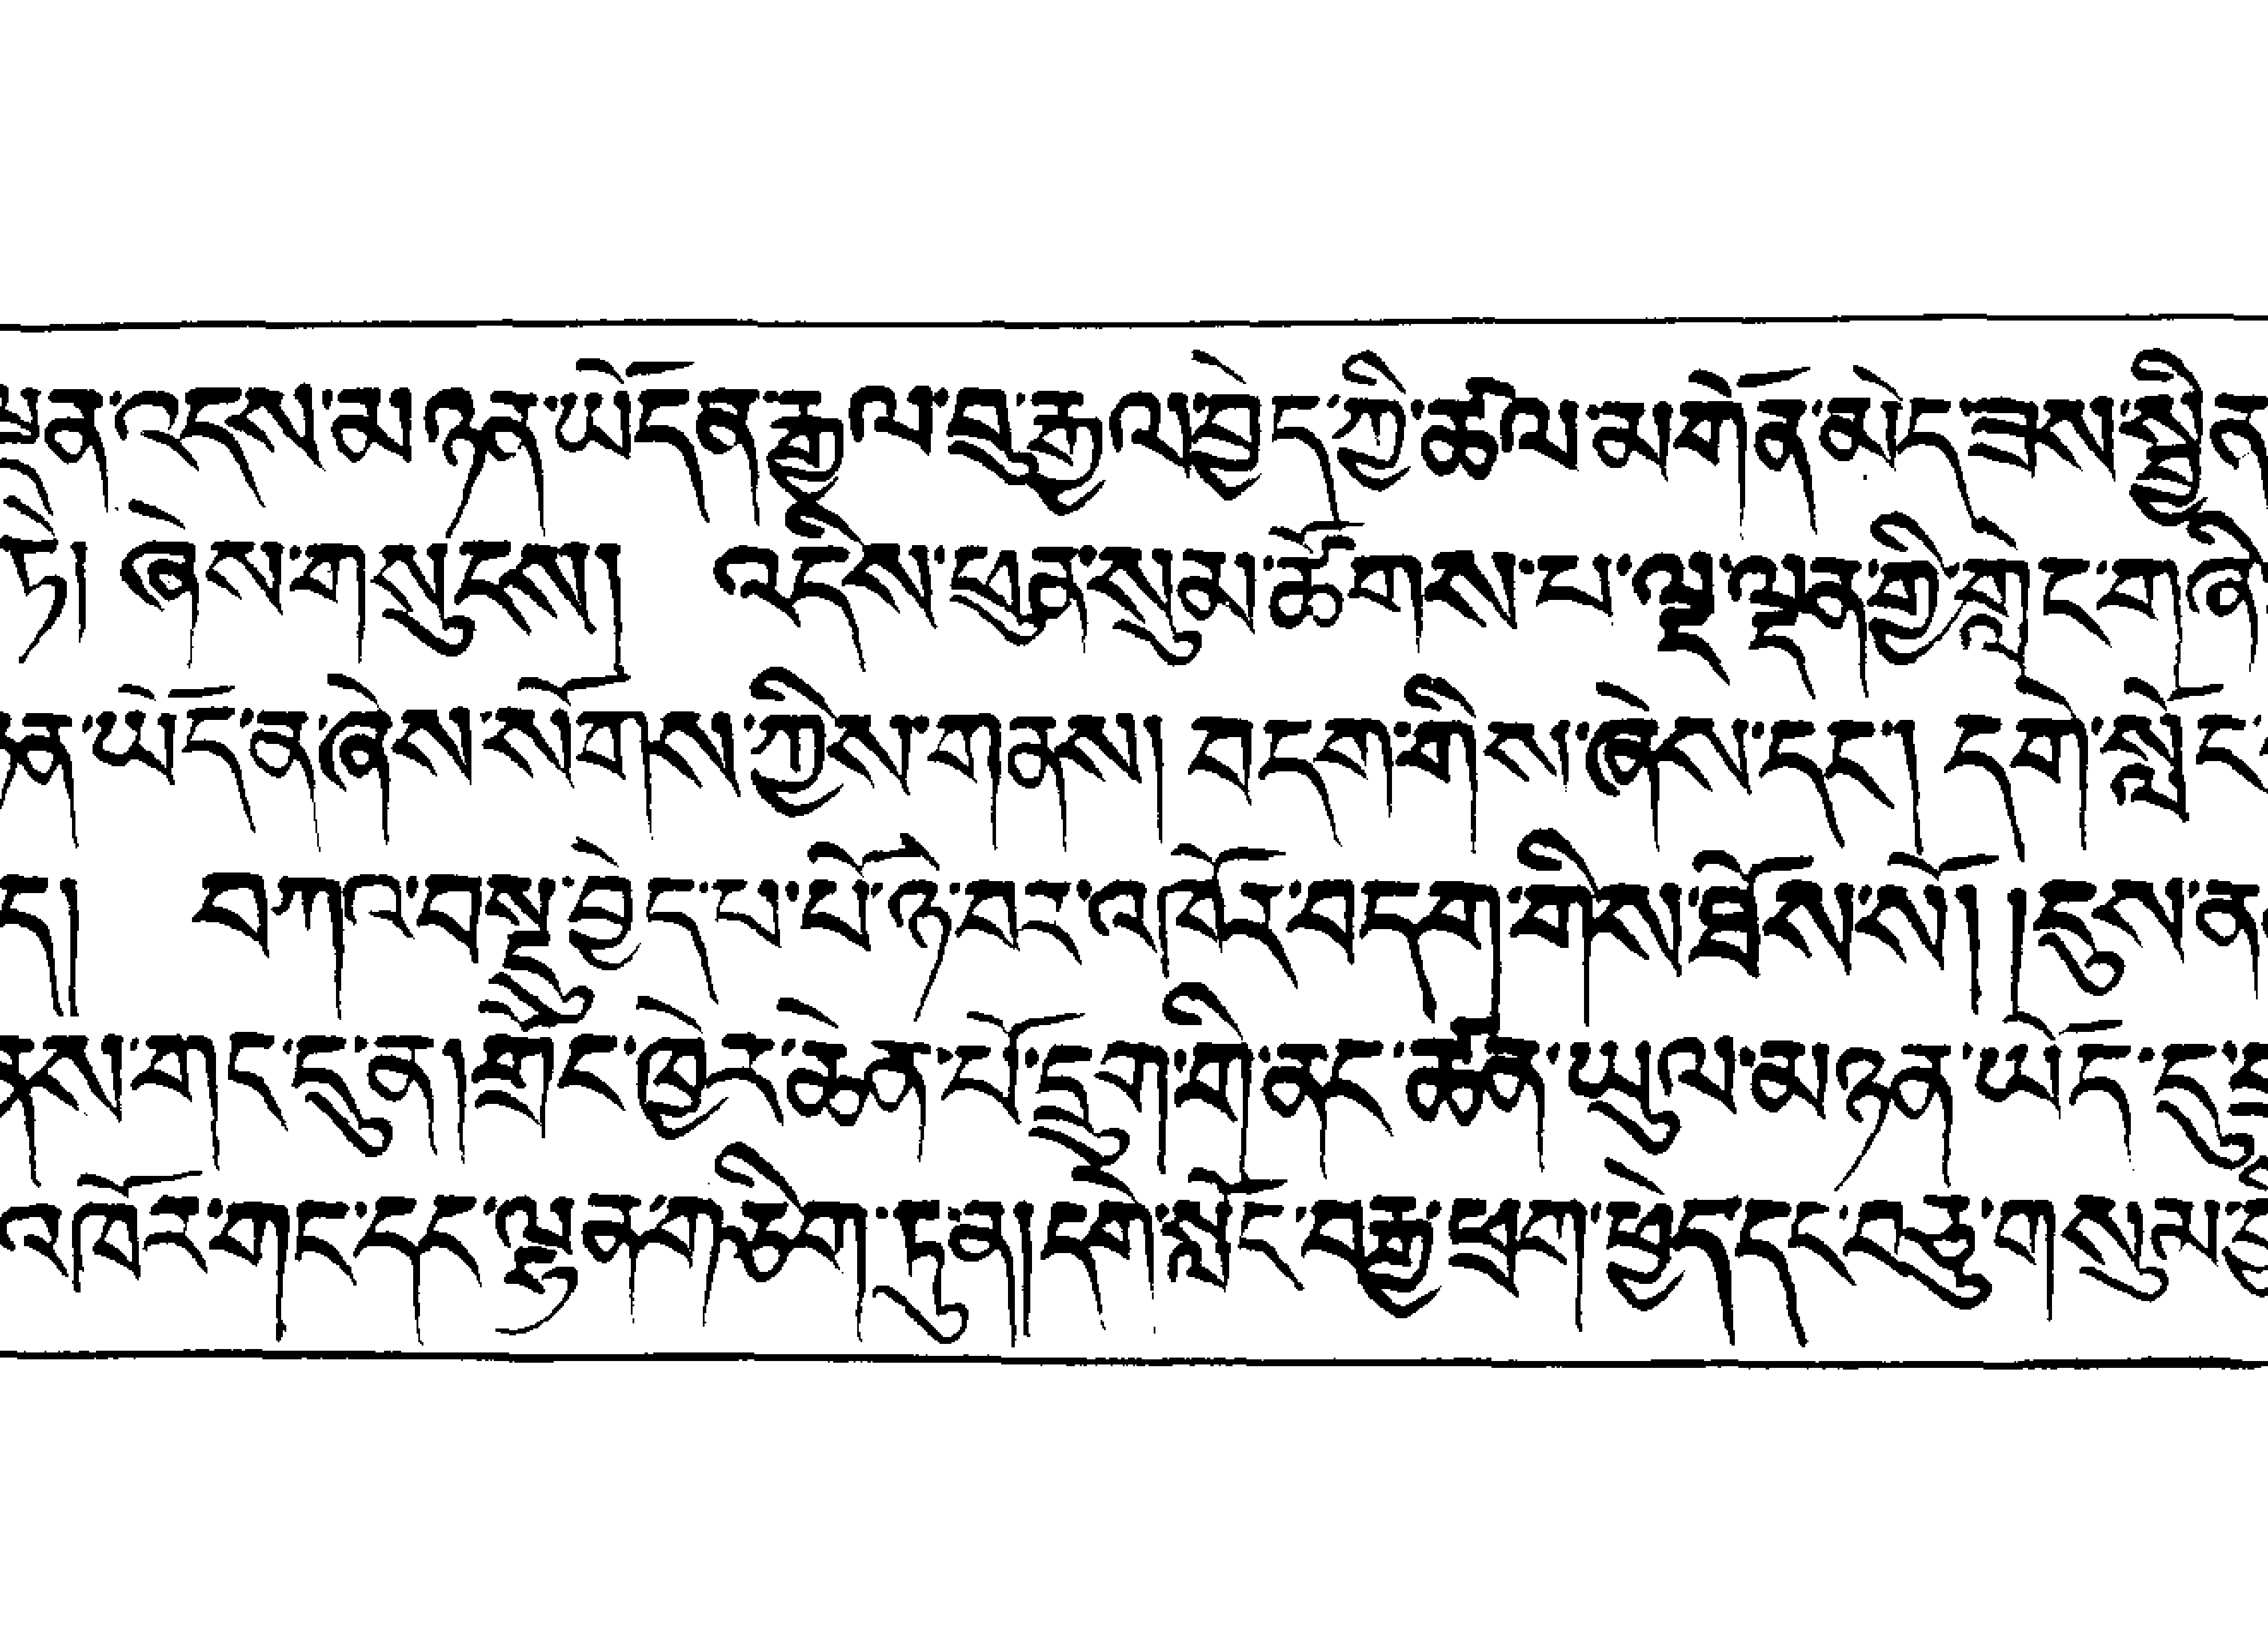 ལྡན་འདས་མཉན་ཡོད་ན་རྒྱལ་བུ་རྒྱལ་བྱེད་ཀྱི་ཚལ་མགོན་མེད་ཟས་སྦྱིན
ཏེ། ཞེས་གསུངས། འདིས་ཕུན་སུམ་ཚོགས་པ་ལྔ་ལྡན་གྱི་གླེང་གཞི
ཉན་ཡོད་ན་ཞེས་སོགས་ཀྱིས་གནས། བདག་གིས་ཞེས་དང་། དགེ་སློང
ད། བཀའ་བསྡུ་བྱེད་པ་པོ་ཉེ་བར་འཁོར་བདག་གིས་ཐོས་སོ། །དུས་ན
གནས་གང་དུ་ན། གྲོང་ཁྱེར་ཆེན་པོ་དྲུག་གི་ནང་ཚན་ཡུལ་མཉན་ཡོད་དུ
འཁོར་གང་དང་ལྷན་གཅིག་ཏུ་ན། དགེ་སློང་བརྒྱ་ཕྲག་ཕྱེད་དང་བཅུ་གསུམ་གྱི